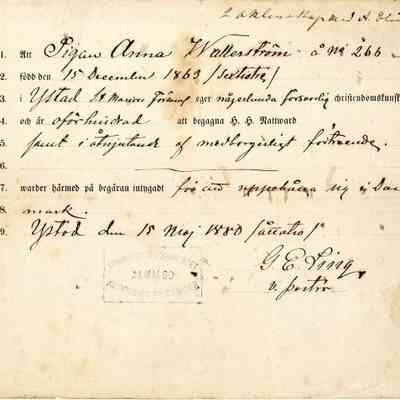 1. Att Pigan Anna Wallerström å No 266
2. född den 15 December 1863 /sextiotre/
3. i Ystad St Mariæ Förs. eger någorlunda försvarlig christendomskunsk
4. och är oförhindrad att begagna H. H. Nattward
5. samt i åtnjutande af medborgerligt förtroende.
6.
7. warder härmed på begäran intygadt för att uppehålla sig i Dan
8. mark.
9. Ystad den 15 Maj 1880 /åttatio/
G. E. Ling
v. pastor